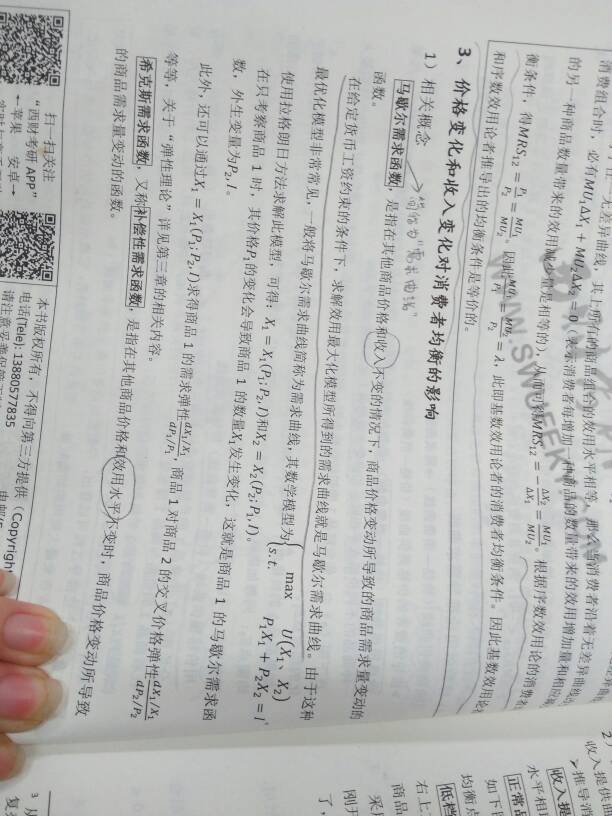 消费组合时，必有MU₁ΔX₁ + MU₂ΔX₂ = 0
衡条件，得MRS₁₂ = P₁/P₂ = MU₁/MU₂。因此MU₁/P₁ = MU₂/P₂ = λ，此即基数效用论者的消费者均衡条件。因此基数效用论
和序数效用论者推导出的均衡条件是等价的。
3、价格变化和收入变化对消费者均衡的影响
1）相关概念
简称为“需求曲线”
马歇尔需求函数，是指在其他商品价格和收入不变的情况下，商品价格变动所导致的商品需求量变动的
函数。
在给定货币工资约束的条件下，求解效用最大化模型所得到的需求曲线就是马歇尔需求曲线。由于这种
最优化模型非常常见，一般将马歇尔需求曲线简称为需求曲线，其数学模型为{ max U(X₁、X₂)
s.t. P₁X₁ + P₂X₂ = I
使用拉格朗日方法求解此模型，可得：X₁ = X₁(P₁; P₂, I)和X₂ = X₂(P₂; P₁, I)。
在只考察商品 1 时，其价格P₁的变化会导致商品 1 的数量X₁发生变化，这就是商品 1 的马歇尔需求函
数，外生变量为P₂, I。
此外，还可以通过X₁ = X₁(P₁; P₂, I)求得商品 1 的需求弹性dX₁/X₁ / dP₁/P₁，商品 1 对商品 2 的交叉价格弹性dX₁/X₁ / dP₂/P₂
等等，关于“弹性理论”详见第三章的相关内容。
希克斯需求函数，又称补偿性需求函数，是指在其他商品价格和效用水平不变时，商品价格变动所导致
的商品需求量变动的函数。
扫一扫关注
“西财考研 APP”
←苹果 安卓→
本书版权所有，不得向第三方提供（Copyright
电话(Tele): 13880577835
WWW.SWUFEKY
2）
收入提
正常品
如下
均衡点
低档
右上
商品
采用
刚开
了，